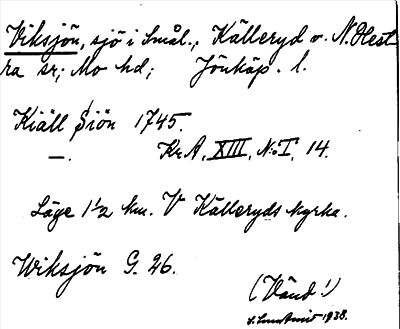 Viksjön, sjö i Smål., Källeryd o. N. Hest
ra sr; Mo hd; Jönköp. l.
Kiäll Siön 1745.
—. Kr.A, XIII, N:o I, 14.
Läge 1½ km. V Källeryds kyrka.
Wiksjön G. 26.
(Vänd!)
1938.